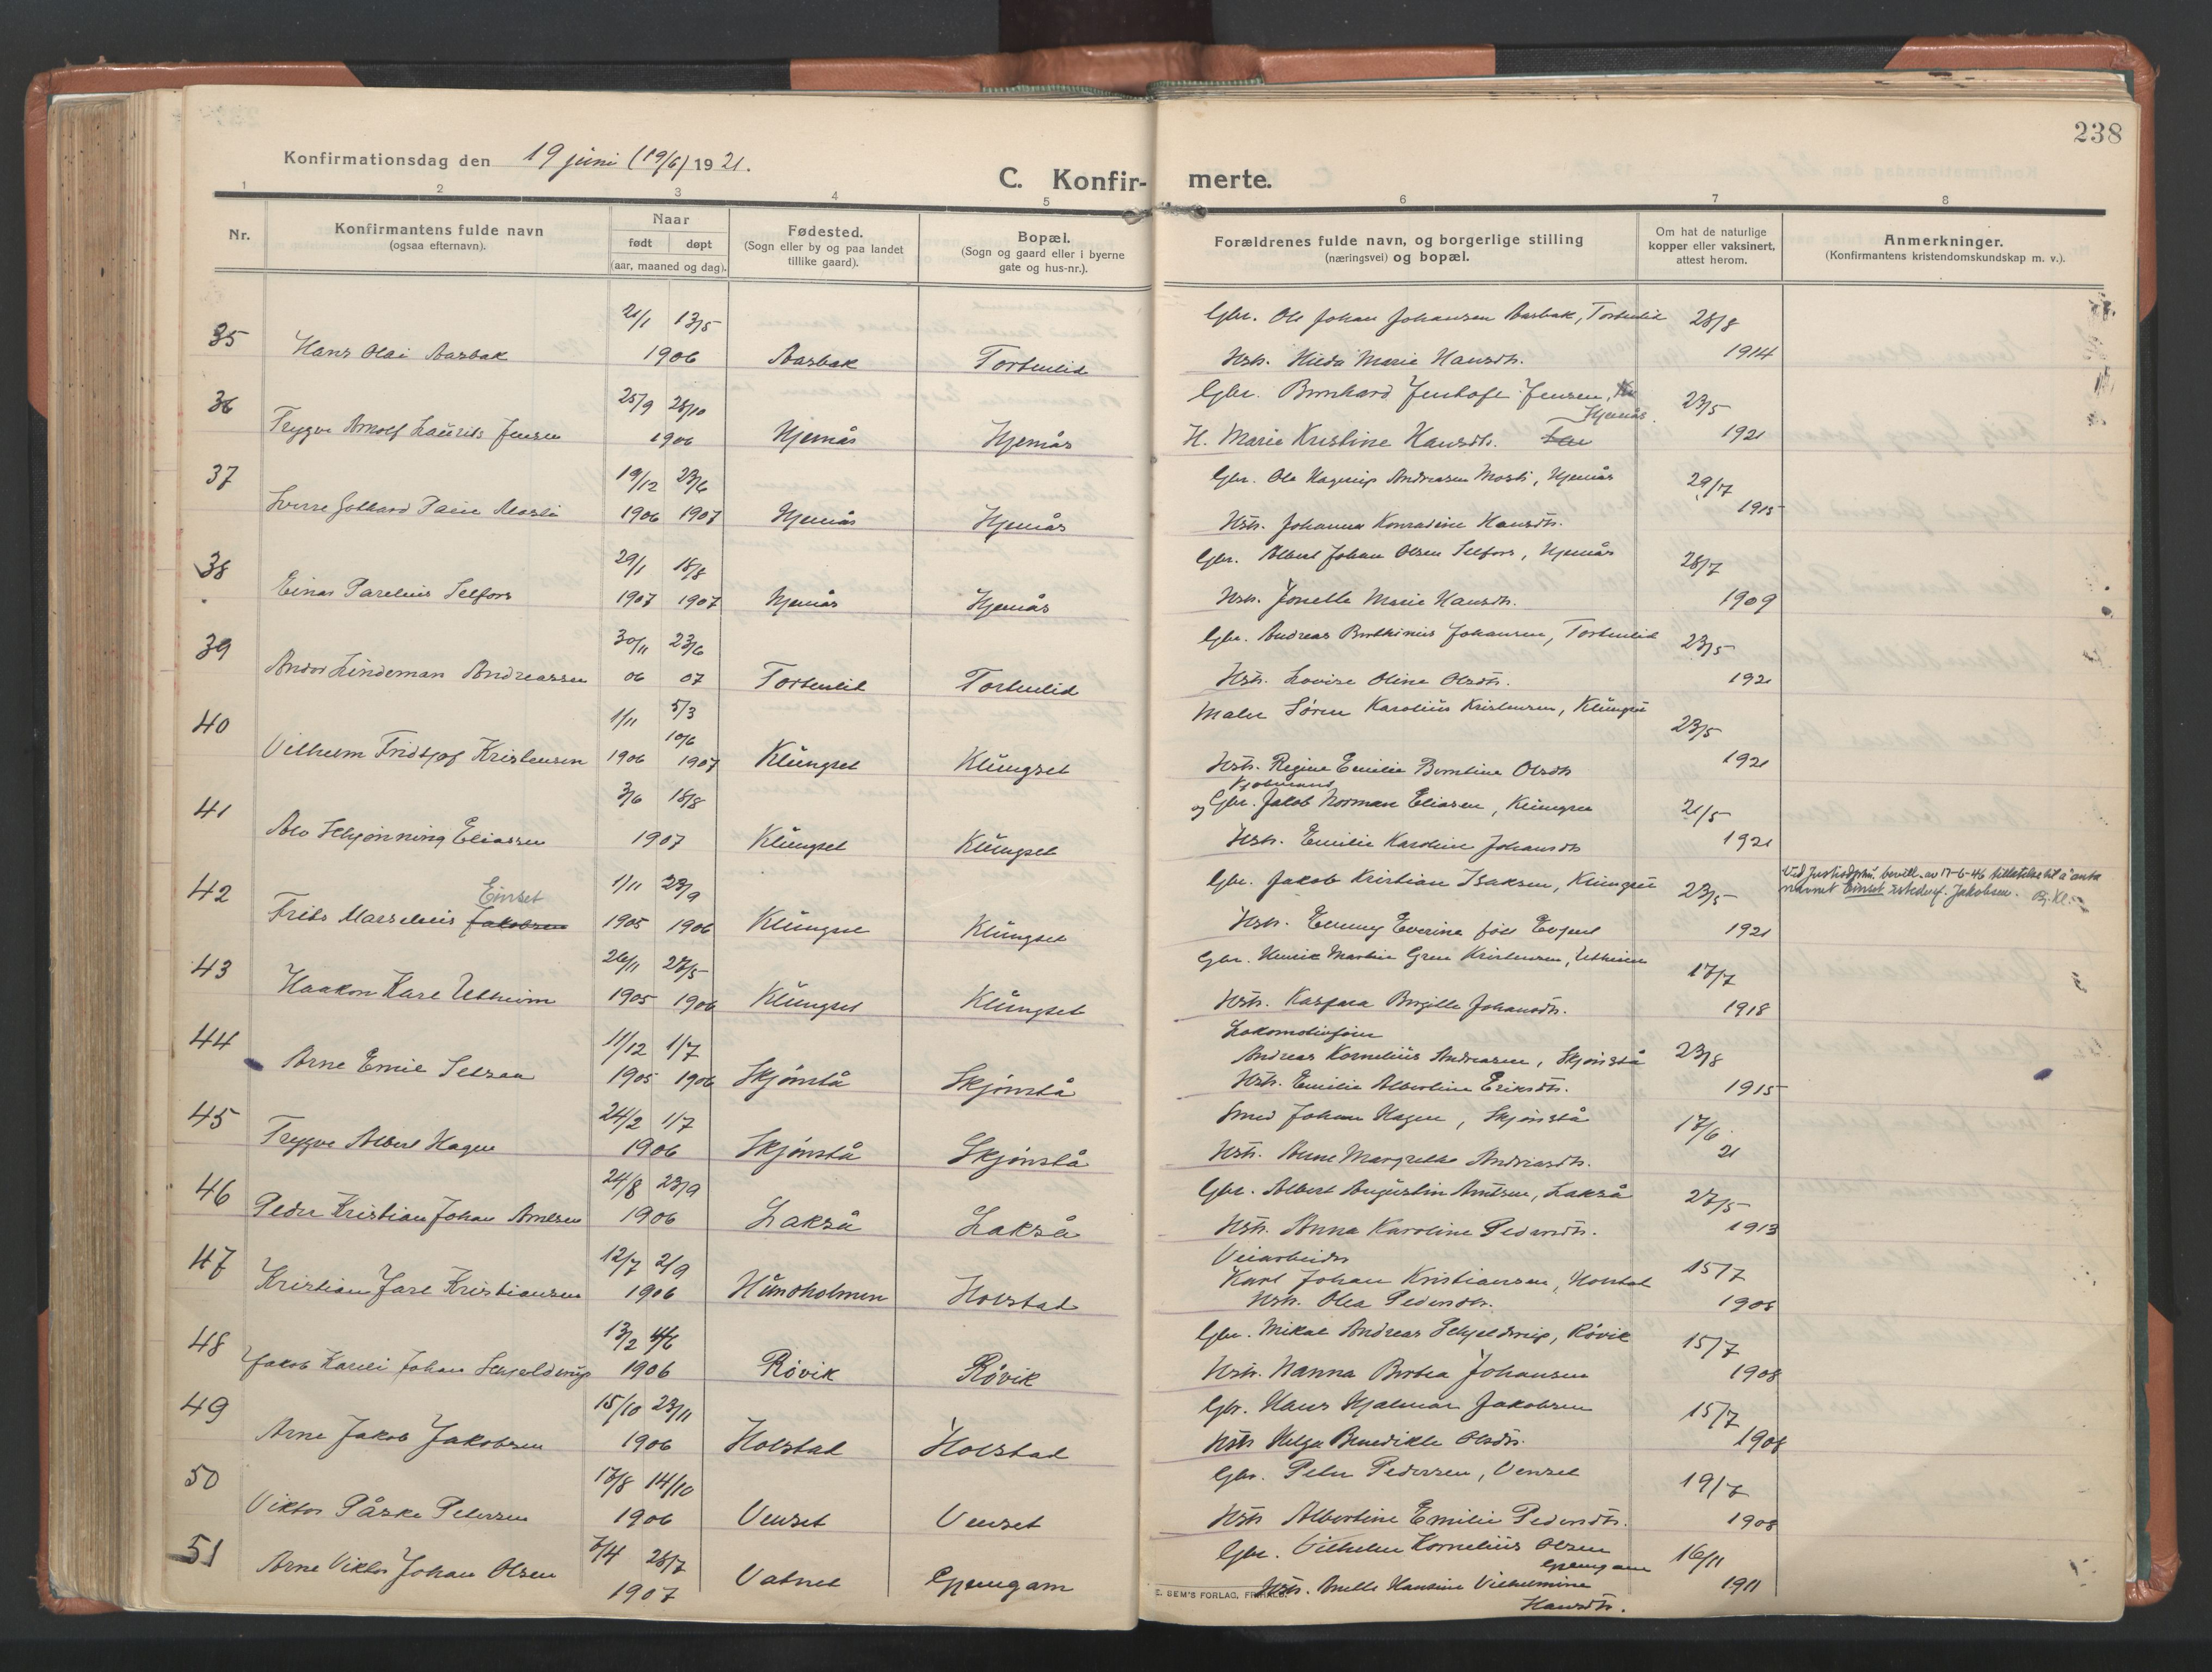 238
Konfirmationsdag den 19 juni (19/6) 1921.
C. Konfir- merte.
1 2 3 4 5 6 7 8
Nr.
Konfirmantens fulde navn
(ogsaa efternavn).
Naar
født døpt
(aar, maaned og dag).
Fødested.
(Sogn eller by og paa landet
tillike gaard).
Bopæl.
(Sogn og gaard eller i byerne
gate og hus-nr.).
Forældrenes fulde navn, og borgerlige stilling
(næringsvei) og bopæl.
Om hat de naturlige
kopper eller vaksinert,
attest herom.
Anmerkninger.
(Konfirmantens kristendomskundskap m. v.).
35 21/1 13/5 Gbr. Ole Johan Johansen Aasbak, 28/8
Hans Olai Aasbak 1906 Aasbak Hstr. Hilda Marie Hansdtr. 1914
36 25/9 28/10 Gbr. Jensen, Hjemås 23/5
Trygve Arnolf Laurits Jensen 1906 Hjemås Hjemås H. Marie Kristine Hansdtr. 1921
37 19/12 23/6 Gbr. Ole Hagerup Andreasen Mosti, Hjemås 29/7
Sverre 1906 1907 Hjemås Hjemås Hstr. Johanna Konradine Hansdtr. 1915
38 29/1 18/8 Gbr. Albert Johan Olsen Selfors, Hjemås 28/7
Einar Parelius Selfors 1907 1907 Hjemås Hjemås Hstr. Jonella Marie Hansdtr. 1909
39 30/11 23/6 Gbr. Andreas Johansen, 23/5
Andor Lindeman Andreassen 06 07 Hstr. Lovise Oline Olsdtr. 1921
40 1/11 5/3 Maler Søren Karolius Kristensen, Klungset 23/5
10/6
Vilhelm Fridtjof Kristensen 1906 1907 Klungset Klungset Hstr. Regine Emilie Olsdtr 1921
41 3/6 18/8 og Gbr. Jakob Norman Eliasen, Klungset 21/5
Alv Schjønning Eliassen 1907 Klungset Klungset Hstr. Emilie Karoline Johansdtr 1921
42 Einset 1/11 23/9 Gbr. Jakob Kristian Isaksen, Klungset 23/5 Ved bevill. av 17-6-46 tillatelse til å anta
Frits Marselius Jakobsen 1905 1906 Klungset Klungset Hstr. Emmy Everine født 1921 navnet Einset istedenf. Jakobsen.
43 26/11 27/5 Gbr. Henrik Martin Kristensen, Utheim 17/7
Haakon Kare Utheim 1905 1906 Klungset Klungset Hstr. Kaspara Johansdtr. 1918
44 11/12 1/7 Andreas Kornelius Andreasen, Skjønstå 23/8
Arne Emil 1905 1906 Skjønstå Skjønstå Hstr. Emilie Albertine Eriksdtr. 1915
45 24/2 1/7 Smed Johan Hagen, Skjønstå 17/6
Trygve Albert Hagen 1906 Skjønstå Skjønstå Hstr. Anne Margrethe Andreasdtr. 21
46 24/8 23/9 Gbr. Albert Augustin Arntsen, Lakså 27/5
Peder Kristian Johan Arntsen 1906 Lakså Lakså Hstr. Anna Karoline Pedersdtr. 1913
47 12/7 2/9 Veiarbeider
Kristian Jarl Kristiansen 1906 Hundholmen Holstad Karl Johan Kristiansen, Holstad 15/7
Hstr. Olea Pedersdtr. 1908
48 13/2 4/6 Gbr. Mikal Andreas Schjelderup, Røvik 15/7
Jakob Kareli Johan Schjelderup 1906 Røvik Røvik Hstr. Hanna Johansen 1908
49 15/10 23/11 Gbr. Hans Hjalmar Jakobsen 15/7
Arne Jakob Jakobsen 1906 Holstad Holstad Hstr Helga Benedikte Olsdtr. 1908
50 17/8 14/10 Gbr. Peder Pedersen, Venset 19/7
Viktor Påske Petersen 1906 Venset Venset Hstr Albertine Emilie Pedersdtr. 1908
51 7/4 28/7 Gbr. Vilhelm Kornelius Olsen 16/11
Gjemgam
Arne Viktor Johan Olsen 1907 Vatnet Gjemgam Hstr. Hansine Vilhelmine 1911
Hansdtr.
E. SEM'S FORLAG, FR.HALD.